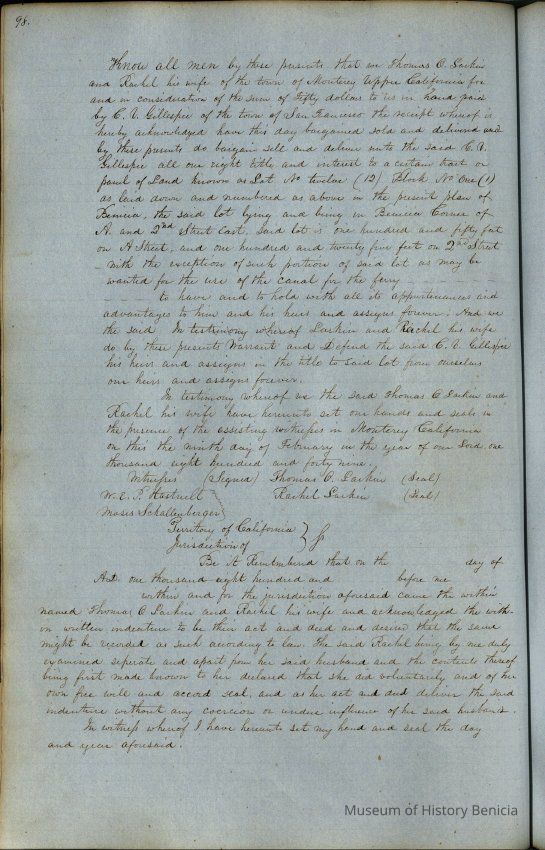 98.
Know all men by these presents that we Thomas O. Larkin
and Rachel his wife of the town of Monterey Upper California for
and in consideration of the sum of Fifty dollars to us in hand paid
by C. V. Gillespie of the town of San Francisco the receipt whereof is
hereby acknowledged have this day bargained sold and delivered and
by these presents do bargain sell and deliver unto the said C. V.
Gillespie all our right title and interest to a certain tract or
parcel of Land known as Lot No twelve (12) Block No One (1)
as laid down and numbered as above in the present plan of
Benicia, the said lot lying and being in Benicia Corner of
A. and 2nd Street East. Said lot is one hundred and fifty feet
on A Street, and one hundred and twenty five feet on 2nd Street
with the exception of such portion of said lot as may be
wanted for the use of the canal for the ferry
to have and to hold with all its appurtenances and
advantages to him and his heirs and assigns forever. And we
the said In testimony whereof Larkin and Rachel his wife
do by these presents Warrant and Defend the said C. V. Gillespie
his heirs and assigns in the title to said lot from ourselves
our heirs and assigns forever.
In testimony whereof we the said Thomas O Larkin and
Rachel his wife have hereunto set our hands and seals in
the presence of the assisting witnesses in Monterey California
on this the ninth day of February in the year of our Lord one
thousand eight hundred and forty nine.
Witnesses (Signed) Thomas O. Larkin (Seal)
W. E. P. Hartnell Rachel Larkin (Seal)
Moses Schallenberger
Territory of California
Jurisdiction of
Be it Remembered that on the day of
A.D. one thousand eight hundred and before me
within and for the jurisdiction aforesaid came the within
named Thomas O Larkin and Rachel his wife and acknowledged the with-
in written indenture to be their act and deed and desired that the same
might be recorded as such according to law. The said Rachel being by me duly
examined seperate and apart from her said husband and the contents thereof
being first made known to her declared that she did voluntarily and of her
own free will and accord seal, and as her act and deed deliver the said
indenture without any coercion or undue influence of her said husband.
In witness whereof I have hereunto set my hand and seal the day
and year aforesaid.
Museum of History Benicia